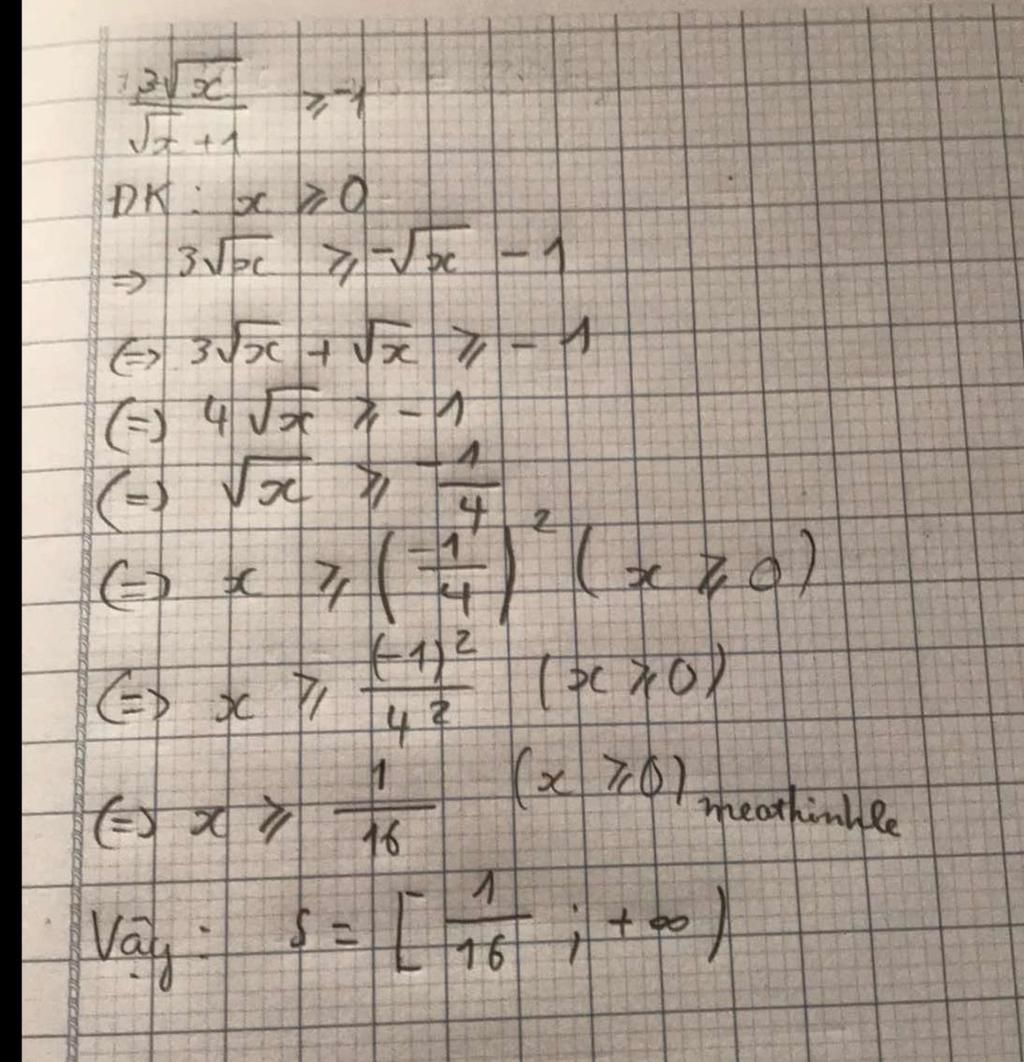 3√x / (√x + 1) ≥ -1
DK : x ≥ 0
⇒ 3√x ≥ -√x - 1
(=) 3√x + √x ≥ - 1
(=) 4√x ≥ - 1
(=) √x ≥ -1/4
(=) x ≥ (-1/4)² (x ≥ 0)
(=) x ≥ (-1)²/4² (x ≥ 0)
(=) x ≥ 1/16 (x ≥ 0) meathinkle
Vậy : S = [1/16 ; +∞)